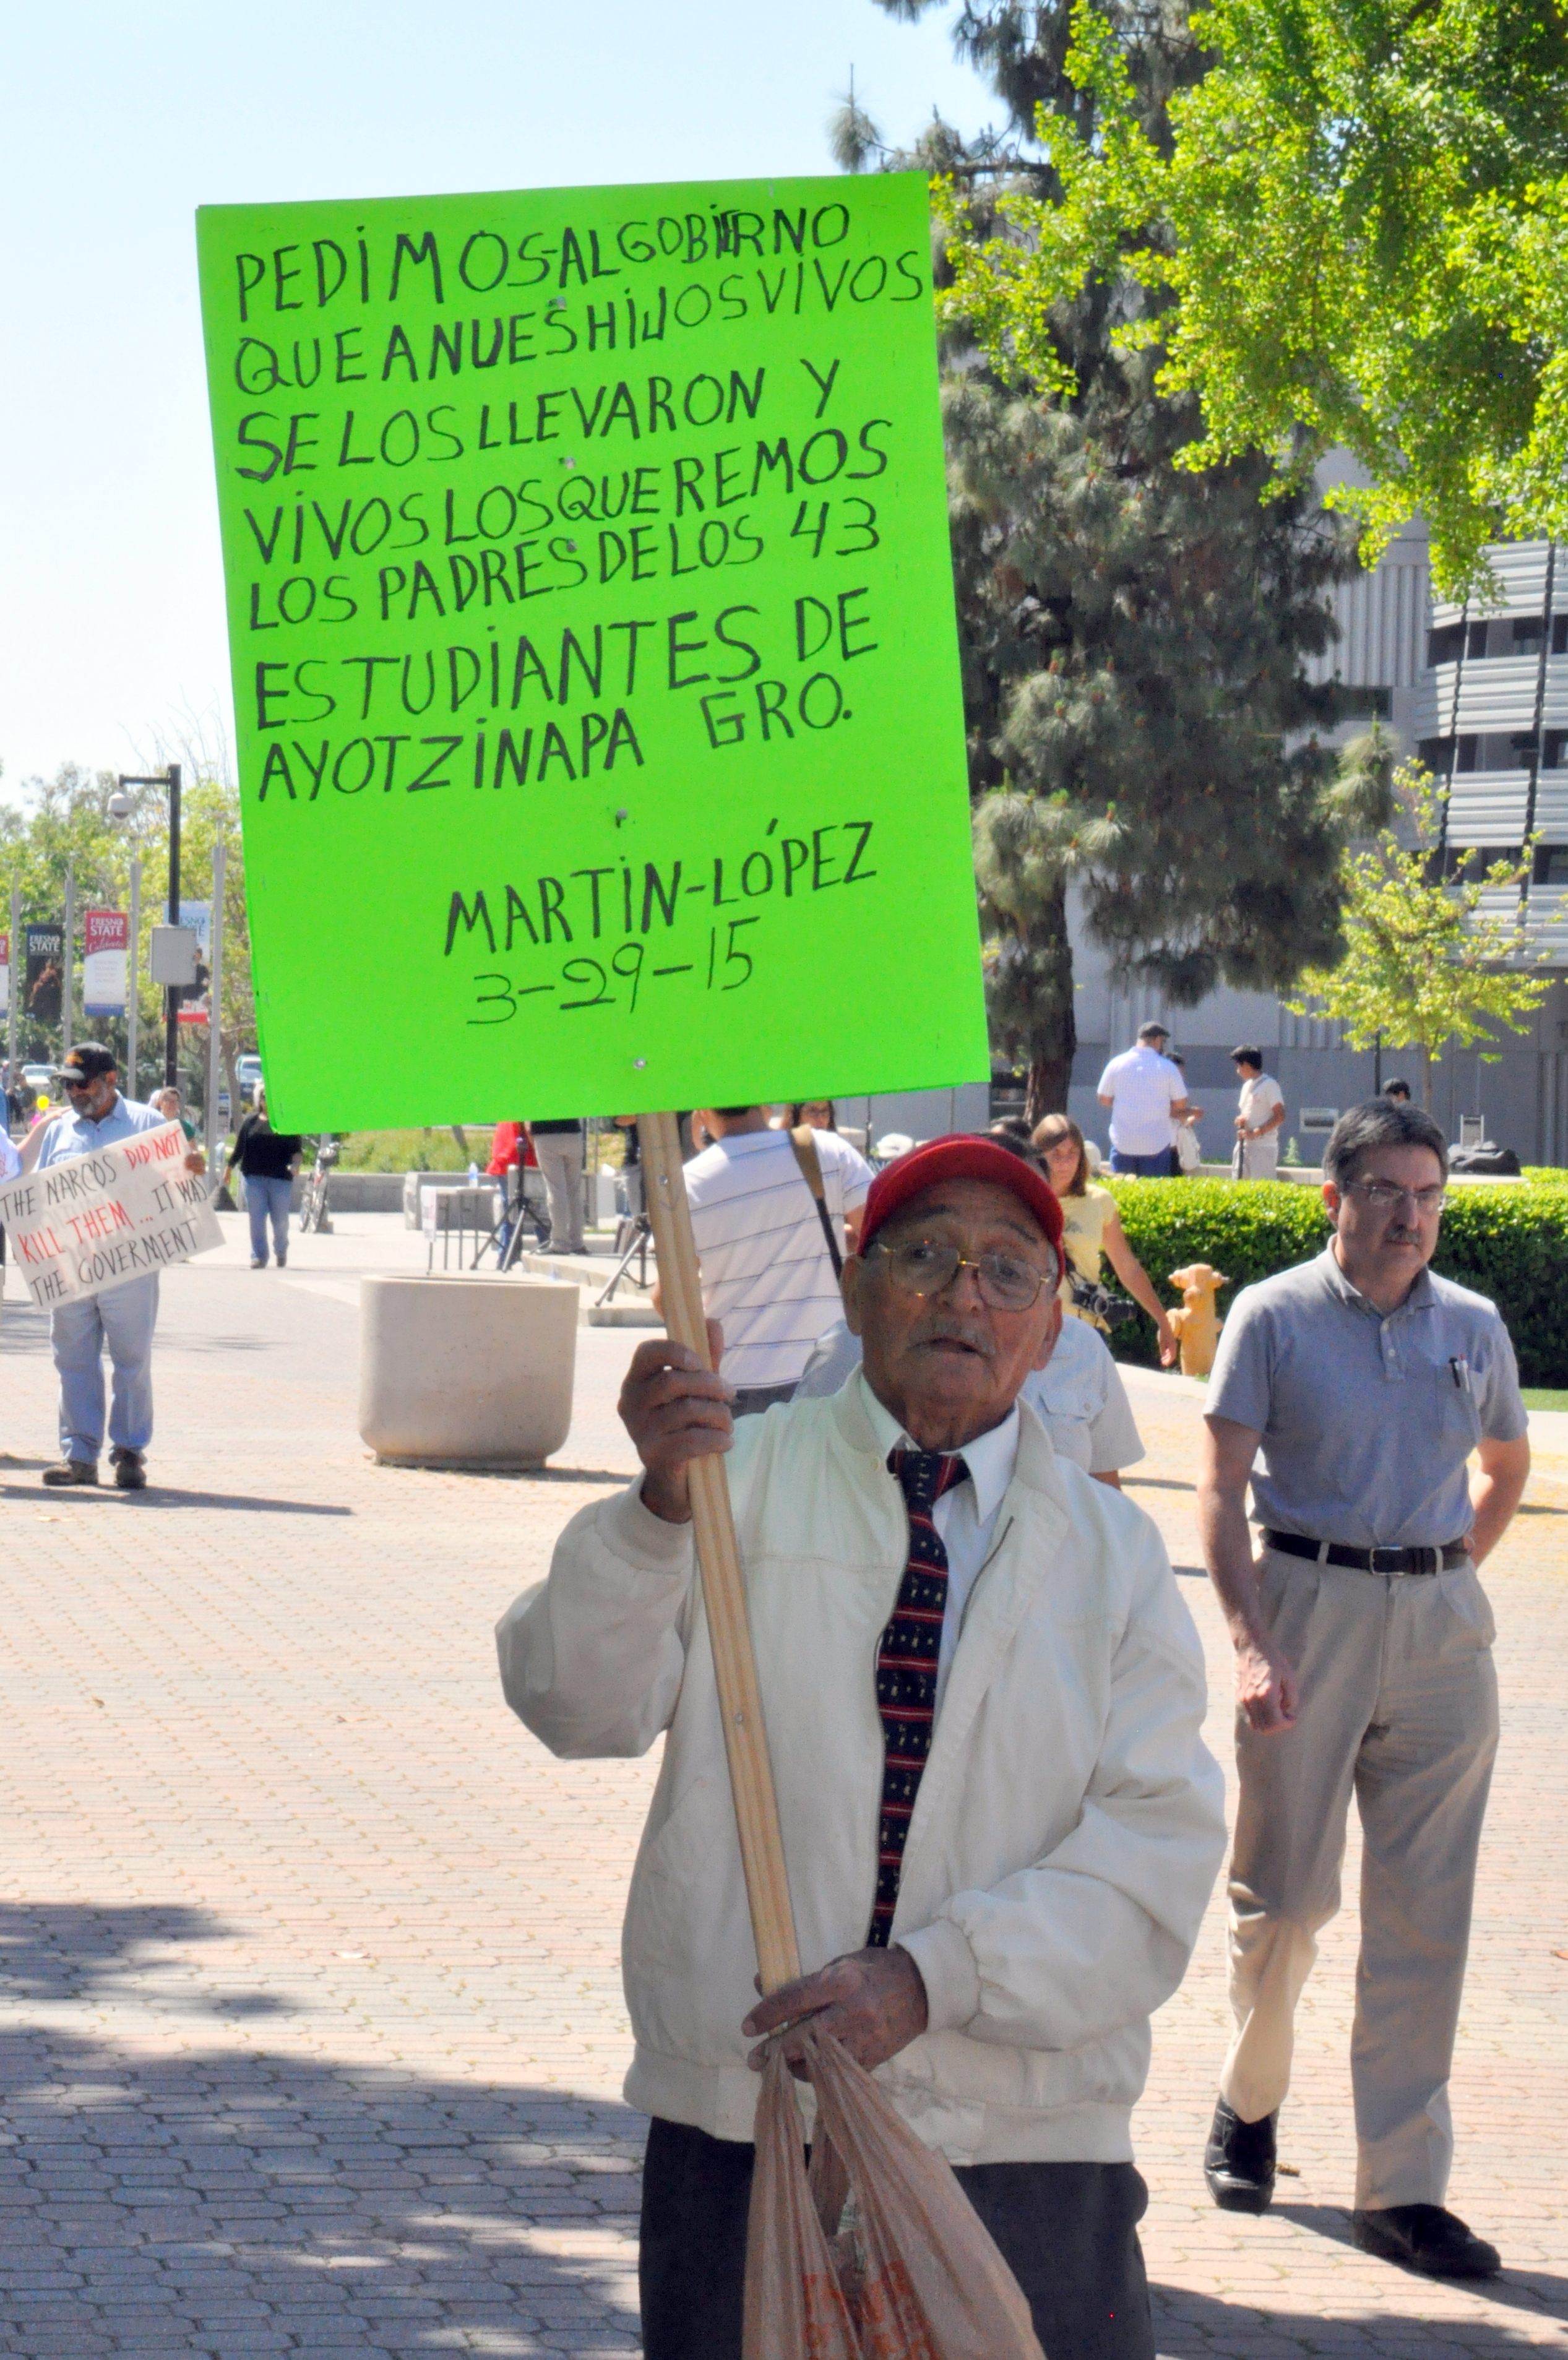 PEDIMOS-AL GOBIERNO
QUE A NUES HIJOS VIVOS
SE LOS LLEVARON Y
VIVOS LOS QUEREMOS
LOS PADRES DE LOS 43
ESTUDIANTES DE
AYOTZINAPA GRO.
MARTIN-LÓPEZ
3-29-15
THE NARCOS DID NOT
KILL THEM... IT WAS
THE GOVERMENT
FRESNO
STATE
FRESNO
STATE